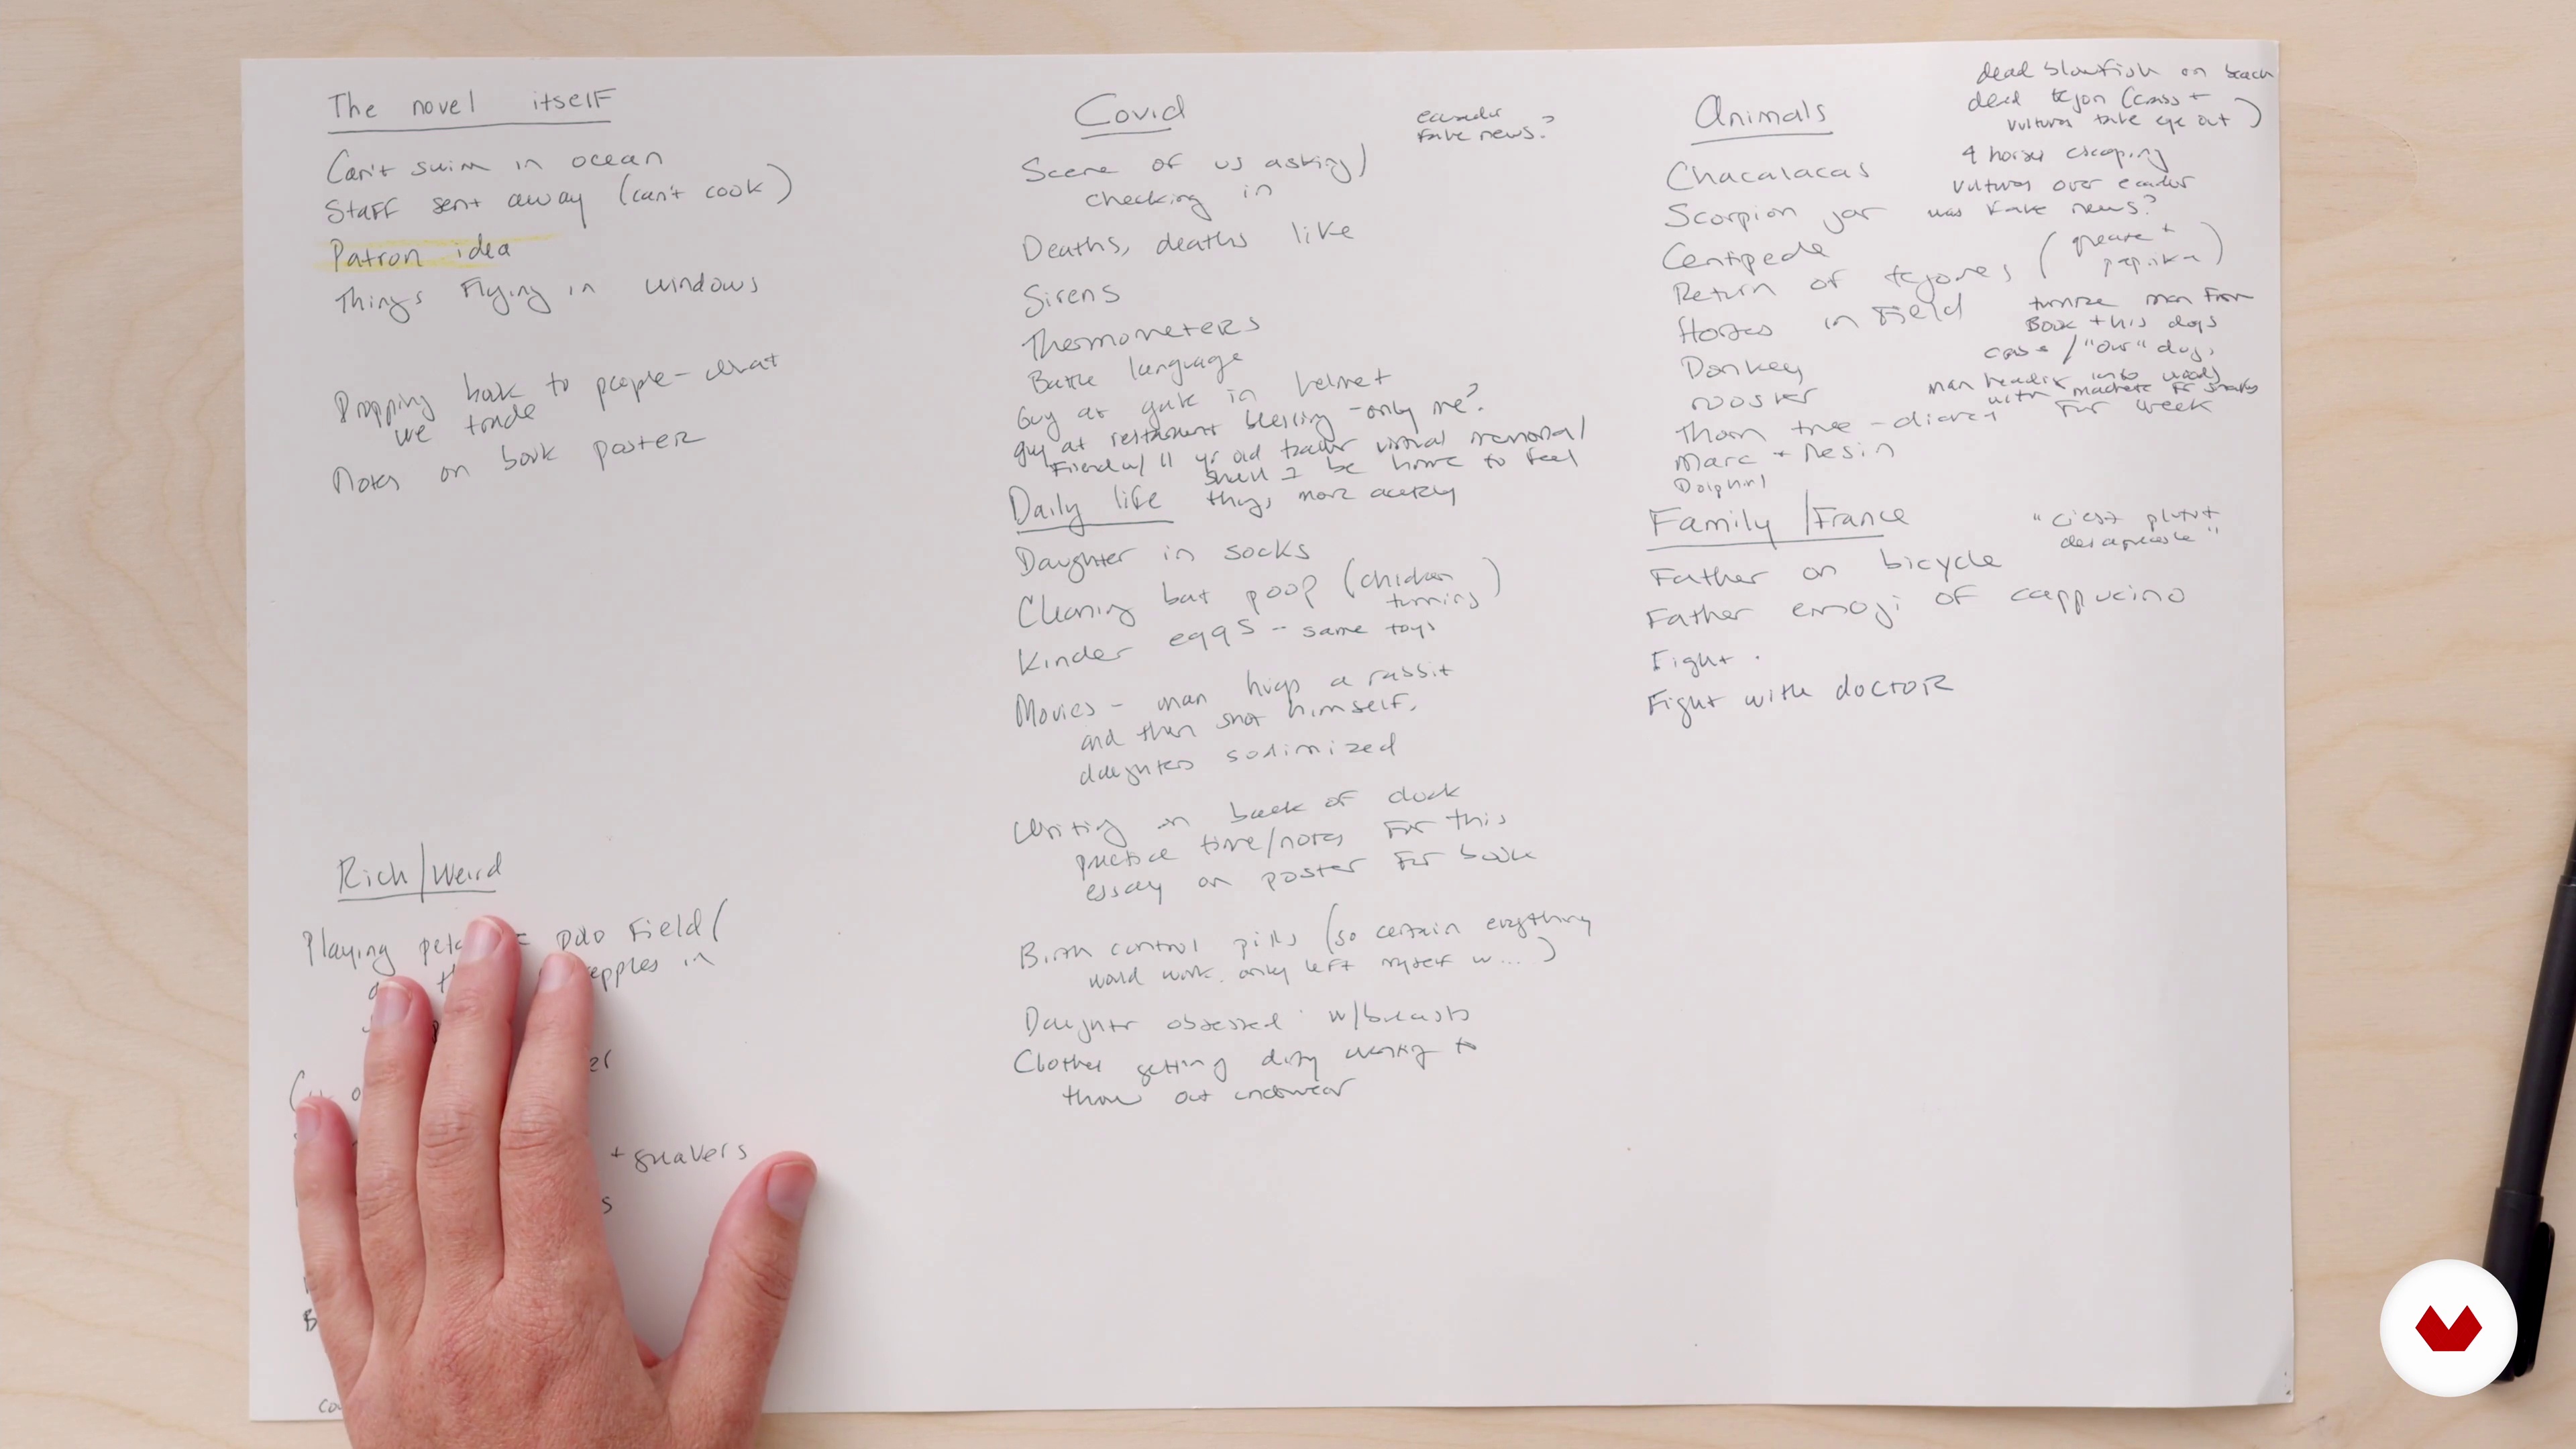 The novel itself
Can't swim in ocean
Staff sent away (can't cook)
Patron idea
Things Flying in windows
Dropping book to people - what
we trade
Notes on book poster
Rich/Weird
Playing field (
apples in
+ guavers
Covid
Fake news?
Scene of us asking/
checking in
Deaths, deaths like
Sirens
Thermometers
Battle language
Guy at gate in helmet
guy at restaurant blessing - only me?
Friend w/ 11 yr old virtual memorial/
Shall I be home to feel
things more acutely
Daily life
Daughter in socks
Cleaning bat poop (chicken
turning)
Kinder eggs - same toys
Movies - man hugs a rabbit
and then shot himself,
daughters sodimized
Writing on back of
practice time/notes For this
essay on poster For book
Birth control pills (so certain everything
would work. only left myself w...)
Daughter obsessed w/breasts
Clothes getting dirty wanting to
throw out underwear
Animals
dead blowfish on beach
dead tejon (cross +
vultures take eye out)
4 horses escaping
vultures over
was Fake news?
Chacalacas
Scorpion jar
Centipede
Return of tejones (grease +
paprika)
Horses in Field
man From
Book + his dogs
case/"our" dog,
Donkey
man heading into woods
with machete For snakes
rooster
For week
Thorn tree -
Marc + Resin
Dolphin
Family/France
"c'est plutot
desagreable"
Father on bicycle
Father emoji of cappucino
Fight.
Fight with doctor